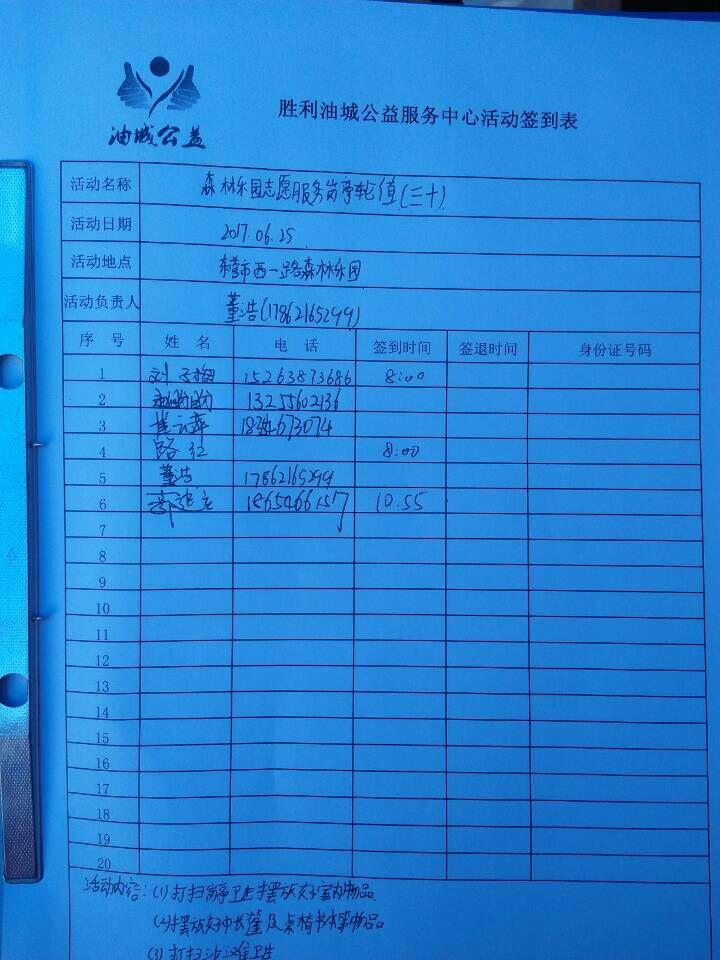 油城公益
胜利油城公益服务中心活动签到表
活动名称 森林乐园志愿服务岗亭轮值(三十)
活动日期 2017.06.25
活动地点 东营市西一路森林乐园
活动负责人 董浩(17862165299)
序号 姓名 电话 签到时间 签退时间 身份证号码
1 刘子梅 15263873686 8:00
2 13255602136
3 崔云萍
4 路红 8:00
5 董浩 17862165299
6 10:55
7
8
9
10
11
12
13
14
15
16
17
18
19
20
活动内容:(1)打扫岗亭卫生摆放好室内物品
(2)摆放好中长篷及桌椅书本等物品
(3)打扫沙滩卫生